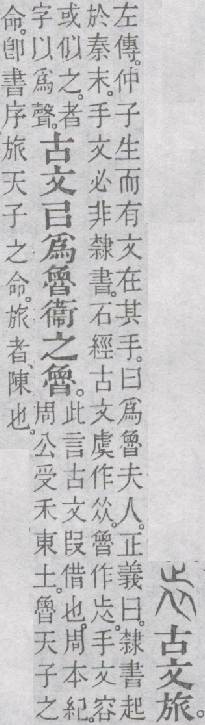 古文旅。
左傳。仲子生而有文在其手。曰爲魯夫人。正義曰。隸書起
於秦末。手文必非隸書。石經古文虞作𠈌。魯作𣥐。手文容
或似之。者
字以爲聲。
古文㠯爲魯衞之魯。
此言古文叚借也。周本紀。
周公受禾東土。魯天子之
命。卽書序旅天子之命。旅者、陳也。